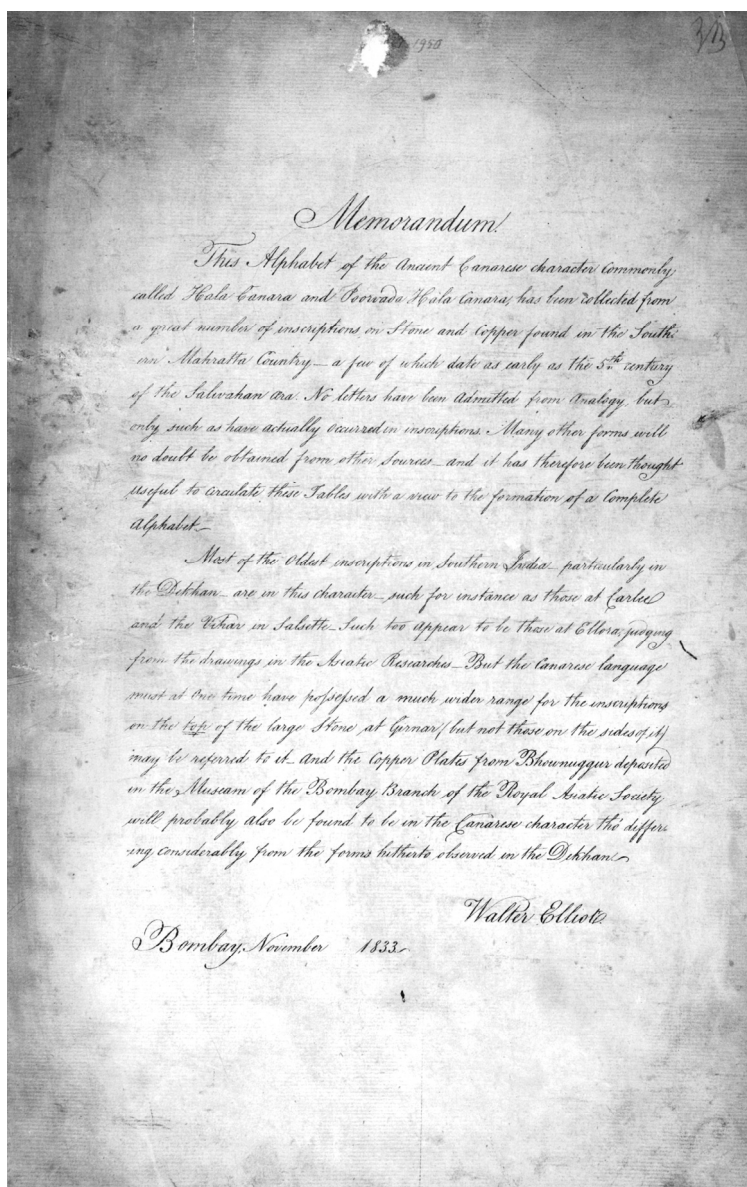 1950
Memorandum.
This Alphabet of the Ancient Canarese character commonly
called Hala Canara and Poorvada Hala Canara, has been collected from
a great number of inscriptions on Stone and Copper found in the South-
ern Mahratta Country — a few of which date as early as the 5th century
of the Salivahan æra. No letters have been admitted from Analogy but
only such as have actually occurred in inscriptions. Many other forms will
no doubt be obtained from other sources — and it has therefore been thought
useful to circulate these Tables with a view to the formation of a Complete
Alphabet —
Most of the Oldest inscriptions in Southern India — particularly in
the Dekhan — are in this character — such for instance as those at Carlee
and the Vihar in Salsette — Such too appear to be those at Ellora, judging
from the drawings in the Asiatic Researches — But the Canarese language
must at one time have possessed a much wider range for the inscriptions
on the top of the large Stone at Girnar (but not those on the sides of it)
may be referred to it — and the Copper Plates from Bhownuggur deposited
in the Museam of the Bombay Branch of the Royal Asiatic Society
will probably also be found to be in the Canarese character tho' differ-
ing considerably from the forms hitherto observed in the Dekhan —
Walter Elliot.
Bombay, November 1833 —